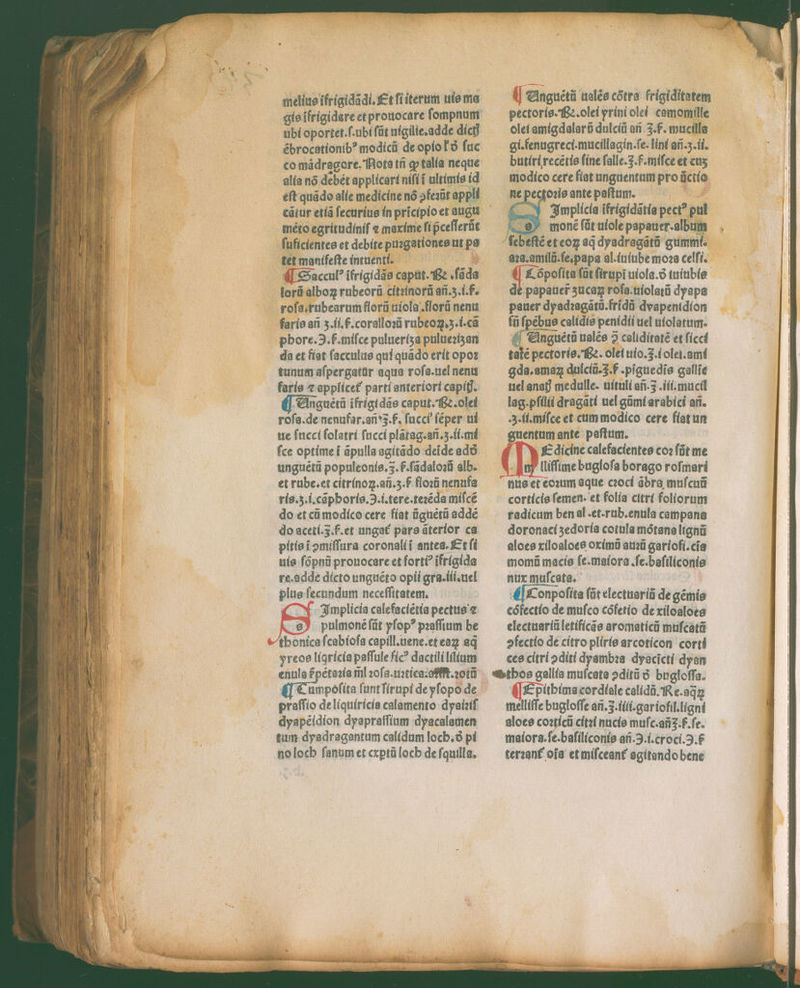 melius ĩfrigidãdi. Et si iterum uis ma
gis ĩfrigidare et prouocare sompnum
ubi oportet. s. ubi sũt uigilie. adde dictꝭ
ẽbrocationibꝰ modicũ de opio ł ð suc
co mãdragore. Nota tñ ꝙ talia neque
alia nõ debẽt applicari nisi ĩ ultimis id
est quãdo alie medicine nõ ꝯferũt appli
cãtur etiã securius in prĩcipio et augu
mẽto egritudinis ⁊ maxime si p̃cesserũt
sufficientes et debite purgationes ut pa
tet manifeste intuenti.
¶ Sacculꝰ ĩfrigidãs caput. ℞. sãda
lorũ alboꝝ rubeorũ citrinorũ añ. ʒ. i. s.
rosa. rubearum florũ uiola. florũ nenu
faris añ ʒ. ii. s. corallorũ rubeoꝝ, ʒ. i. cã
phore. ℈. s. misce pulueriza puluerizan
da et fiat sacculus qui quãdo erit opor
tunum aspergatũr aqua rosa. uel nenu
faris ⁊ applicet᷑ parti anteriori capitꝭ.
¶ Unguẽtũ ĩfrigidãs caput. ℞. olei
rosa. de nenufar. añ ʒ. s. succi sẽper ui
ue succi solatri succi plãtag. añ. ʒ. ii. mi
sce optime ĩ ãpulla agitãdo deĩde addẽ
unguẽtũ populeonis. ʒ. s. sãdalorũ alb.
et rube. et citrinoꝝ. añ. ʒ. s florũ nenufa
ris. ʒ. i. cãphoris. ℈. i. tere. terẽda miscẽ
do et cũ modico cere fiat ũguẽtũ addẽ
do aceti. ʒ. s. et ungat᷑ pars ãterior ca
pitis ĩ ꝯmissura coronali ĩ antea. Et si
uis sõpnũ prouocare et fortiꝰ ĩfrigida
re. adde dicto unguẽto opii gra. iii. uel
plus secundum necessitatem.
Simplicia calefaciẽtia pectus ⁊
pulmonẽ sũt ysopꝰ prassium be
thonica scabiosa capill. uene. et eaꝝ aq̃
yreos liqricia passule ficꝰ dactili lilium
enula
¶ Cumposita sunt sirupi de ysopo de
prassio de liquiricia calamento dyairis
dyapẽidion dyaprassium dyacalamen
tum dyadragantum calidum loch. ð pi
no loch sanum et exptũ loch de squilla.
¶ Unguẽtũ ualẽs cõtra frigiditatem
pectoris. ℞. olei yrini olei camomille
olei amigdalarũ dulciũ añ ʒ. s. mucilla
gi. fenugreci. mucillagin. se. lini añ. ʒ. ii.
butiri recẽtis sine salle. ʒ. s. misce et cuʒ
modico cere fiat unguentum pro ũctio
ne pectoris ante pastum.
Simplicia ĩfrigidãtia pectꝰ pul
monẽ sũt uiole papauer. album
sebestẽ et eoꝝ aq̃ dyadragãtũ gummi.
ara. amilũ. se. papa al. iuiube mora celsi.
¶ Cõposita sũt sirupi uiola. ð iuiubis
de papauer᷑ zucaꝝ rosa. uiolatũ dyapa
pauer dyadragãtũ. frĩdũ dyapenidion
sñ spẽbus calidis penidii uel uiolatum.
¶ Unguẽtũ ualẽs ꝯ caliditatẽ et sicci
tatẽ pectoris. ℞. olei uio. ʒ. i olei. ami
gda. amaꝝ dulciũ. ʒ. s. piguedis gallie
uel anatꝭ medulle. uituli añ. ʒ. iii. mucil
lag. psilii dragãti uel gũmi arabici añ.
ʒ. ii. misce et cum modico cere fiat un
guentum ante pastum.
Medicine calefacientes cor sũt me
llissime buglosa borago rosmari
nus et eorum aque croci ãbra muscuũ
corticis semen. et folia citri foliorum
radicum ben al. et. rub. enula campana
doronaci zedoria cotula mõtana lignũ
aloes xiloaloes oximũ aurũ gariofi. cĩa
momũ macis se. maiora. se. basiliconis
nux muscata.
¶ Conposita sũt electuariũ de gẽmis
cõfectio de musco cõfetio de xiloaloes
electuariũ letificãs aromaticũ muscatũ
ꝯfectio de citro pliris arcoticon corti
ces citri ꝯditi dyambra dyacicti dyan
thos gallia muscata ꝯditũ ð buglossa.
¶ Epithima cordiale calidũ. Re. aq̃ꝝ
mellisse buglosse añ. ʒ. iiii. gariofil. ligni
aloes corticũ citri nucis musc. añ ʒ. s. se.
maiora. se. basiliconis añ. ℈. i. croci. ℈. s
terzant᷑ oĩa et misceant᷑ agitando bene